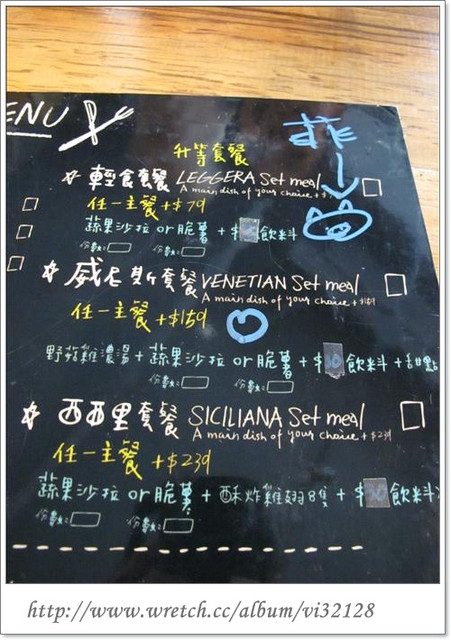 ENU
菲
升等套餐
輕食套餐 LEGGERA Set meal
A main dish of your choice + $
任一主餐 +$79
蔬果沙拉 or 脆薯 + $ 飲料
份數:
威尼斯套餐 VENETIAN Set meal
A main dish of your choice + $159
任一主餐 +$159
野菇雞濃湯 + 蔬果沙拉 or 脆薯 + $30飲料 + 甜點
份數: 份數:
西西里套餐 SICILIANA Set meal
A main dish of your choice + $239
任一主餐 +$239
蔬果沙拉 or 脆薯 + 酥炸雞翅8隻 + $30飲料
份數: 份數:
http://www.wretch.cc/album/vi32128